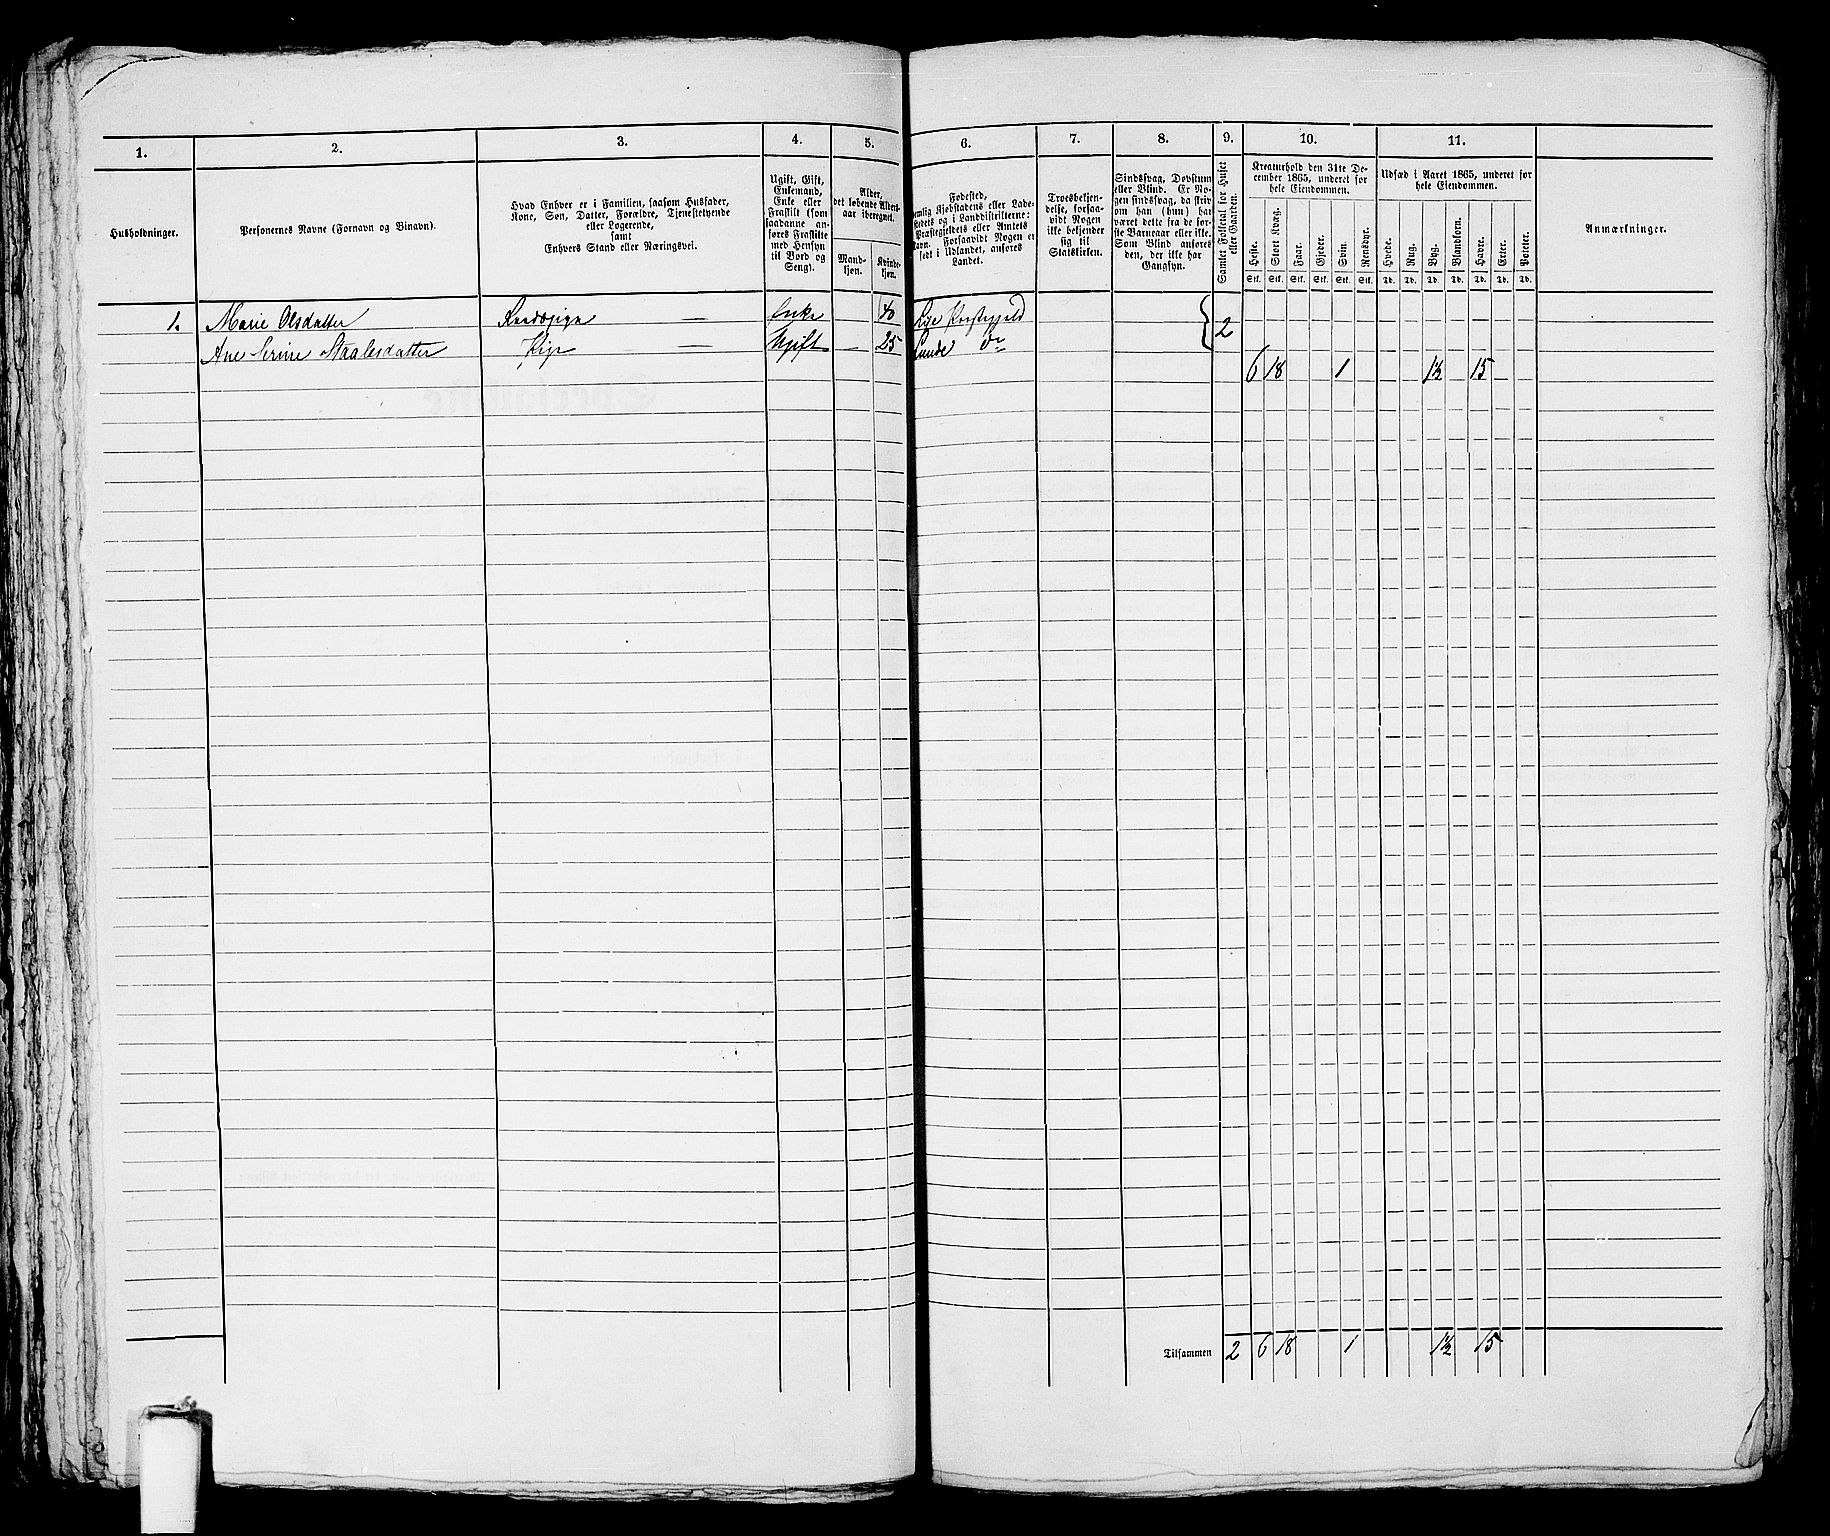 1. 2. 3. 4. 5. 6. 7. 8. 9. 10. 11.
Husholdninger.
Personernes Navne (Fornavn og Binavn).
Hvad Enhver er i Familien, saasom Husfader,
Kone, Søn, Datter, Forældre, Tjenestetyende
eller Logerende,
samt
Enhvers Stand eller Næringsvei.
Ugift, Gift,
Enkemand,
Enke eller
Fraskilt (som
saadanne an-
føres Fraskilte
med Hensyn
til Bord og
Seng).
Alder,
det løbende Alders-
aar iberegnet.
Mand-
kjøn.
Kvinde-
kjøn.
Fødested,
nemlig Kjøbstadens eller Lade-
stedets og i Landdistrikterne:
Præstegjeldets eller Amtets
Navn. Forsaavidt Nogen er
født i Udlandet, anføres
Landet.
Troesbekjen-
delse, forsaa-
vidt Nogen
ikke bekjender
sig til
Statskirken.
Sindssvag, Døvstum
eller Blind. Er No-
gen sindssvag, da skriv
om han (hun) har
været dette fra de før-
ste Barneaar eller ikke.
Som Blind anføres
den, der ikke har
Gangsyn.
Samlet Folketal for Huset
eller Gaarden.
Kreaturhold den 31te De-
cember 1865, underet for
hele Eiendommen.
Heste. Stort Kvæg. Faar. Gjeder. Svin. Rensdyr.
Stk. Stk. Stk. Stk. Stk. Stk.
Udsæd i Aaret 1865, underet for
hele Eiendommen.
Hvede. Rug. Byg. Blandkorn. Havre. Erter. Poteter.
Td. Td. Td. Td. Td. Td. Td.
Anmærkninger.
1. Marie Olsdatter — Enke 40 Lye Præstegjeld
Ane Serine Staalesdatter — Ugift — 25 Lunde do 2
6 18 1 1½ 15
Tilsammen 2 6 18 1 1½ 15